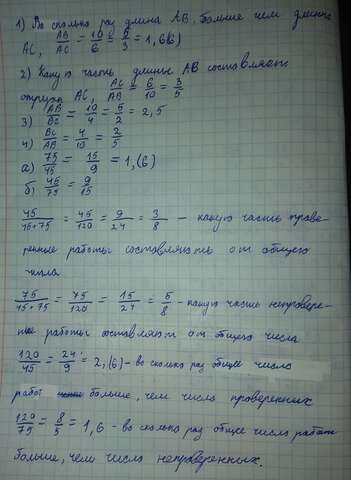 1) Во сколько раз длина AB, больше чем длина
AC, AB/AC = 10/6 = 5/3 = 1,6(6)
2) Какую часть длины AB составляет
отрезок AC, AC/AB = 6/10 = 3/5
3) AB/BC = 10/4 = 5/2 = 2,5
4) BC/AB = 4/10 = 2/5
а) 75/45 = 15/9 = 1,(6)
б) 45/75 = 9/15
45/45+75 = 45/120 = 9/24 = 3/8 - какую часть прове-
ренные работы составляют от общего
числа
75/45+75 = 75/120 = 15/24 = 5/8 - какую часть непровере-
ные работы составляют от общего числа
120/45 = 24/9 = 2,(6) - во сколько раз общее число
работ больше, чем число проверенных
120/75 = 8/5 = 1,6 - во сколько раз общее число работ
больше, чем число непроверенных.